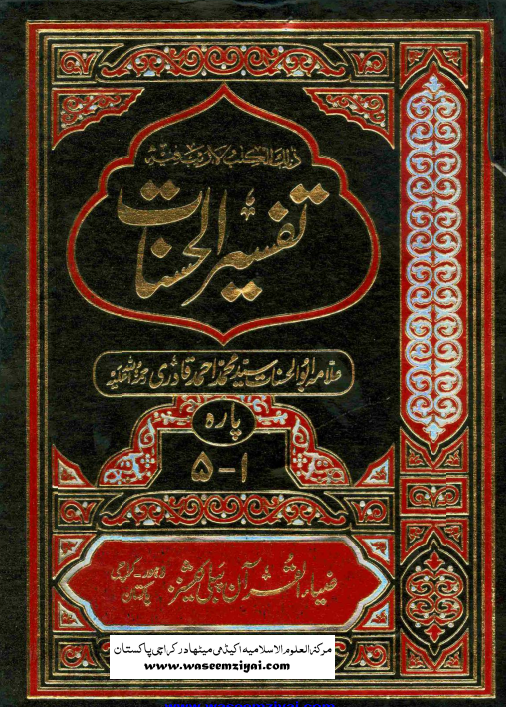 ذٰلك الكتٰب لا ريب فيه
تفسیر الحسنات
علامہ ابو الحسنات سید محمد احمد قادری رحمۃ اللہ علیہ
پارہ
۱-۵
ضیاء القرآن پبلی کیشنز
لاہور - کراچی
پاکستان
مرکز العلوم الاسلامیہ اکیڈمی میٹھادر کراچی پاکستان
www.waseemziyai.com
www.waseemziyai.com